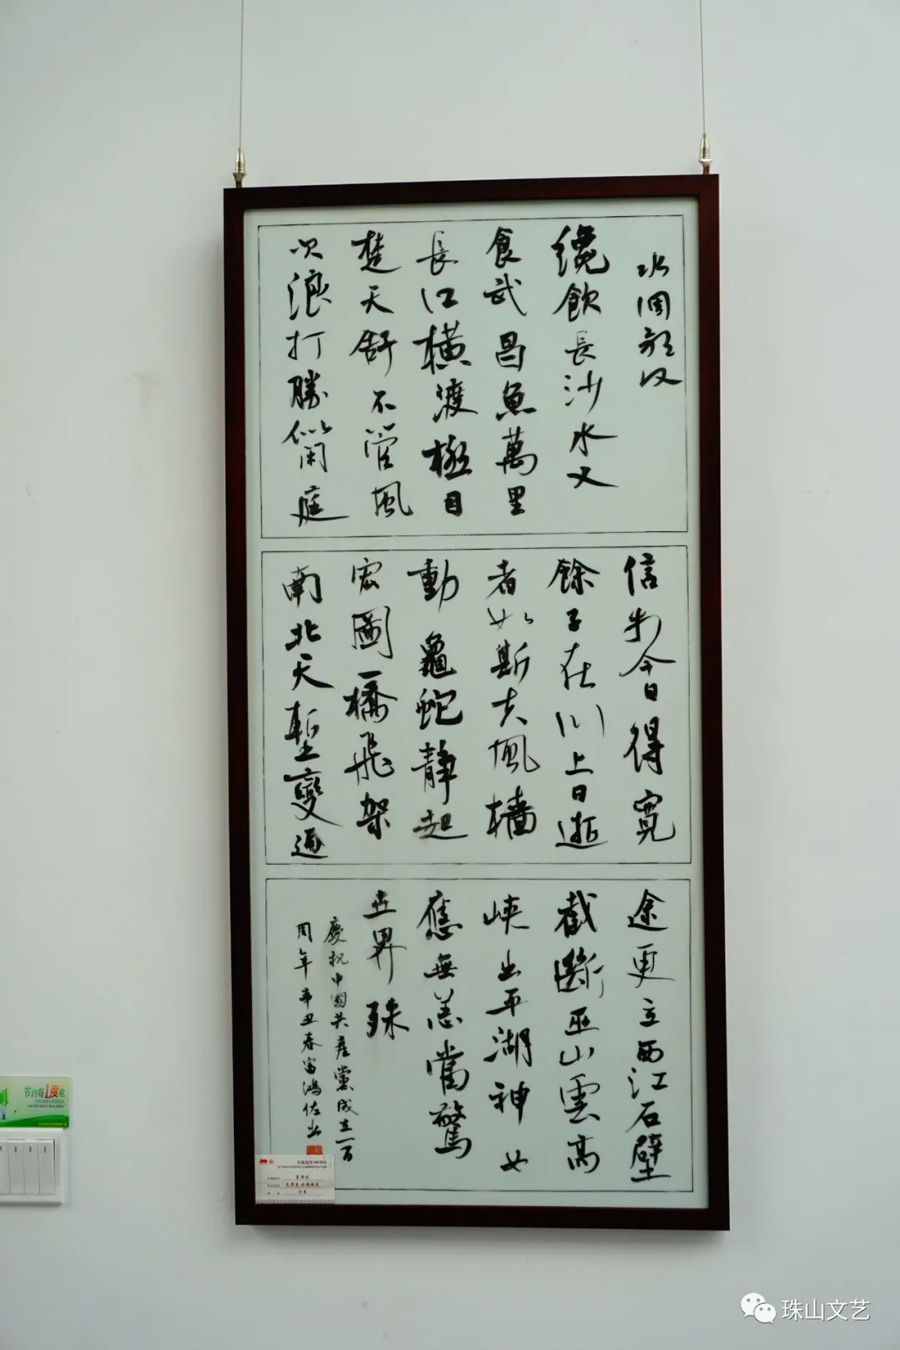 水调歌头
纔飲長沙水又
食武昌魚萬里
長江橫渡極目
楚天舒不管風
吹浪打勝似閑庭
信步今日得寬
餘子在川上曰逝
者如斯夫風檣
動龜蛇靜起
宏圖一橋飛架
南北天塹變通
途更立西江石壁
截斷巫山雲雨高
峽出平湖神女
應無恙當驚
世界殊
慶祝中國共產黨成立一百
周年辛丑春
节约每1度电
珠山文艺